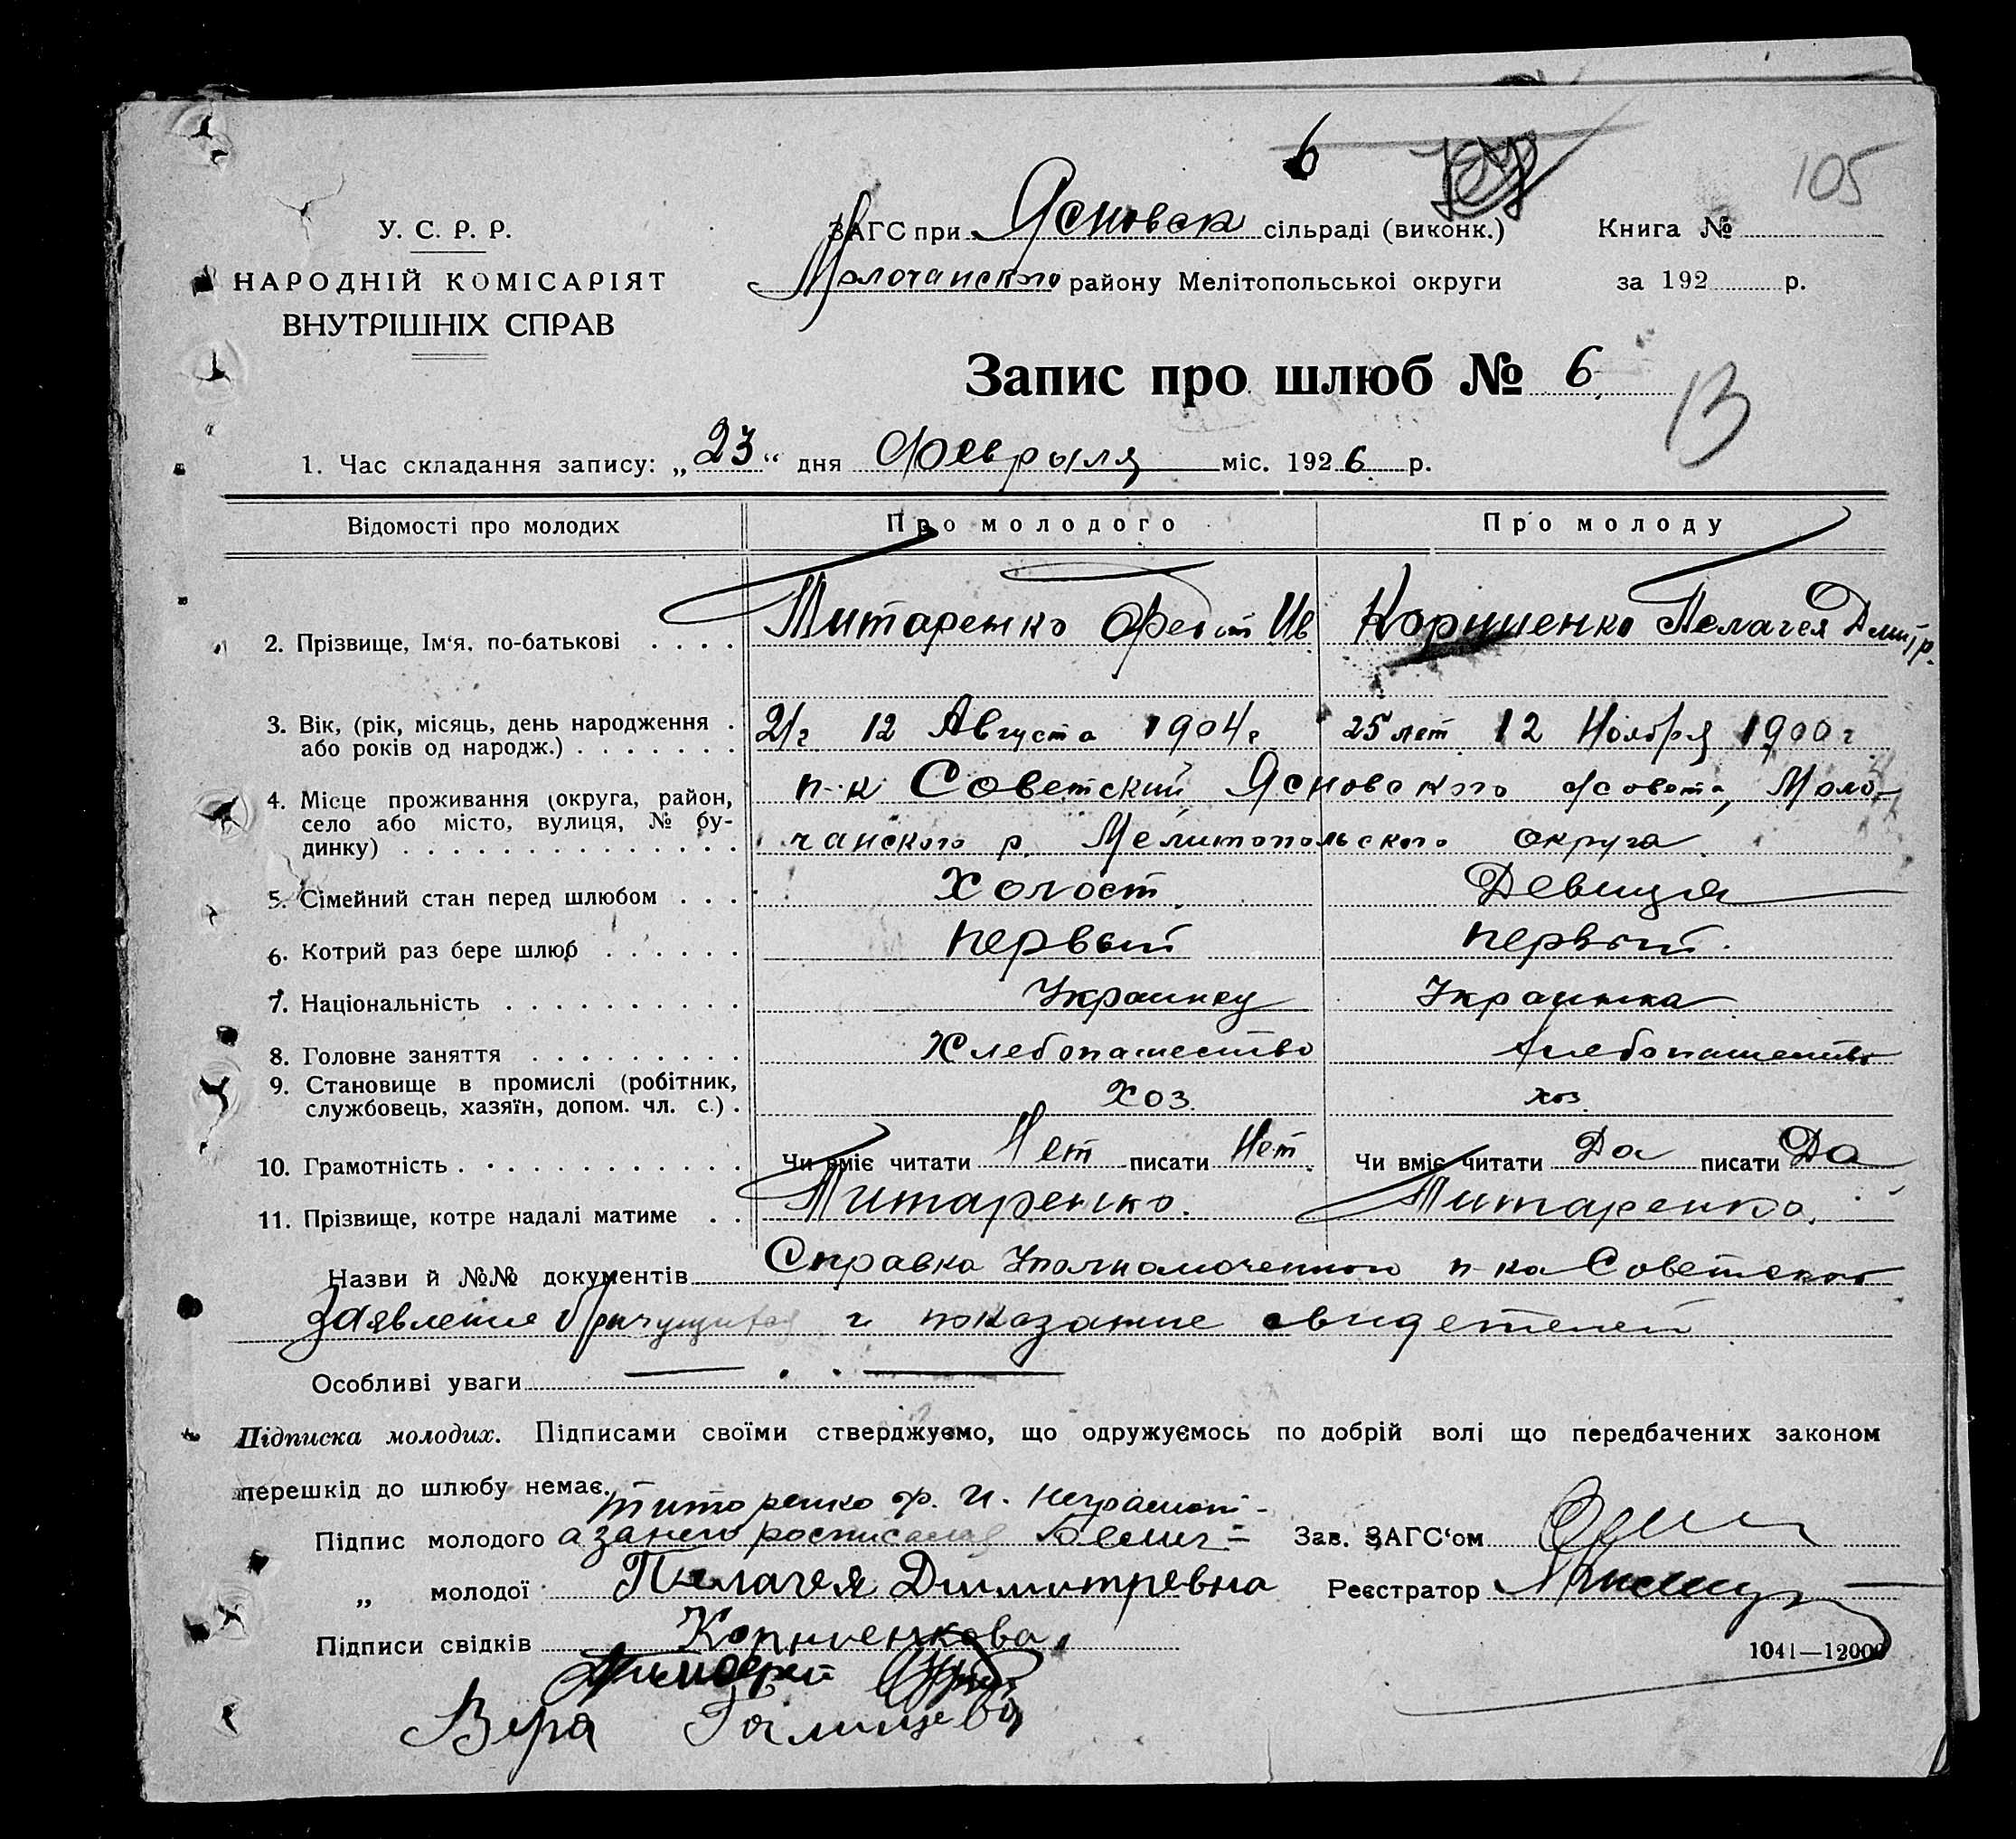 6
105
У. С. Р. Р.
НАРОДНІЙ КОМІСАРІЯТ
ВНУТРІШНІХ СПРАВ
ЗАГС при Ясновск сільраді (виконк.) Книга №
Молочанского району Мелітопольської округи за 192 р.
Запис про шлюб № 6
13
1. Час складання запису: „23“ дня Февраля міс. 1926 р.
Відомості про молодих Про молодого Про молоду
2. Прізвище, Ім'я, по-батькові Титаренко Феот Ив Корниенко Пелагея Дмитр.
3. Вік, (рік, місяць, день народження або років од народж.) 21 г 12 Августа 1904 г 25 лет 12 Ноября 1900 г
4. Місце проживання (округа, район, село або місто, вулиця, № будинку) п-к Советский Ясновского с/совета, Моло-
чанского р. Мелитопольского округа.
5. Сімейний стан перед шлюбом Холост Девица
6. Котрий раз бере шлюб первый первый.
7. Національність Украинец Украинка
8. Головне заняття Хлебопашество Хлебопашество
9. Становище в промислі (робітник, службовець, хазяїн, допом. чл. с.) Хоз. хоз.
10. Грамотність Чи вміє читати Нет писати Нет. Чи вміє читати Да писати Да
11. Прізвище, котре надалі матиме Титаренко. Титаренко.
Назви й №№ документів Справка Уполномоченного п-ка Советского
Заявление брачущихся и показание свидетелей
Особливі уваги
Підписка молодих. Підписами своїми стверджуємо, що одружуємось по добрій волі що передбачених законом
перешкід до шлюбу немає.
Титоренко Ф. И. Неграмот-
Підпис молодого а за него росписался Зав. ЗАГС'ом
„ молодої Пелагея Димитревна Реєстратор
Підписи свідків Корниенкова
1041—12000
Тимофей
Вера Голищева